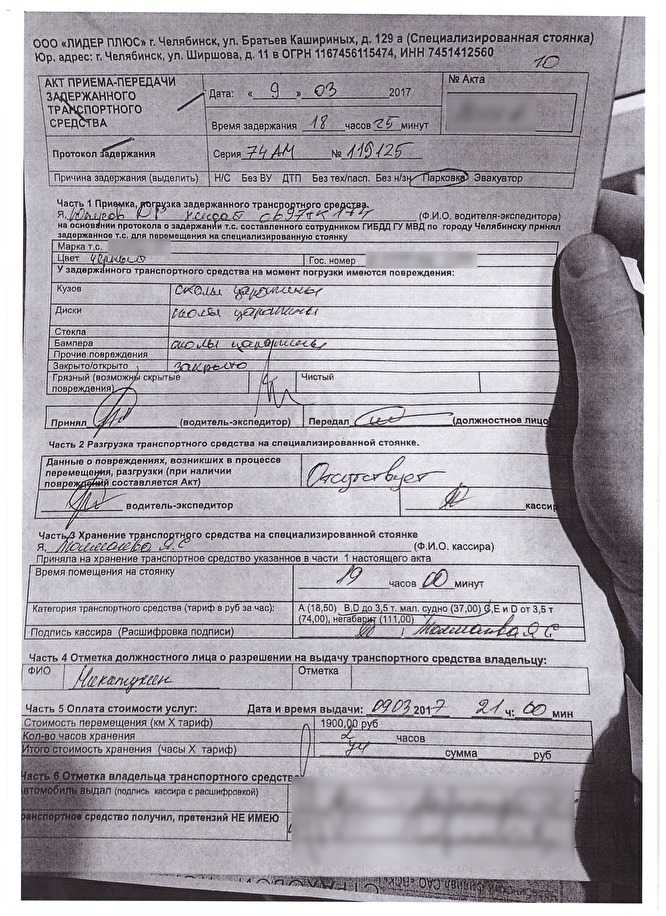 ООО «ЛИДЕР ПЛЮС» г. Челябинск, ул. Братьев Кашириных, д. 129 а (Специализированная стоянка)
Юр. адрес: г. Челябинск, ул. Ширшова, д. 11 в ОГРН 1167456115474, ИНН 7451412560
10
АКТ ПРИЕМА-ПЕРЕДАЧИ ЗАДЕРЖАННОГО ТРАНСПОРТНОГО СРЕДСТВА
Дата: « 9 » 03 2017
№ Акта
Время задержания 18 часов 25 минут
Протокол задержания Серия 74 АМ № 119125
Причина задержания (выделить) Н/С Без ВУ ДТП Без тех/пасп. Без н/зн Парковка Эвакуатор
Часть 1 Приемка, погрузка задержанного транспортного средства.
Я, (Ф.И.О. водителя-экспедитора)
на основании протокола о задержании т.с. составленного сотрудником ГИБДД ГУ МВД по городу Челябинску принял
задержанное т.с. для перемещения на специализированную стоянку
Марка т.с.
Цвет черный Гос. номер
У задержанного транспортного средства на момент погрузки имеются повреждения:
Кузов сколы царапины
Диски сколы царапины
Стекла
Бампера сколы царапины
Прочие повреждения
Закрыто/открыто закрыто
Грязный (возможны скрытые повреждения) Чистый
Принял (водитель-экспедитор) Передал (должностное лицо
Часть 2 Разгрузка транспортного средства на специализированной стоянке.
Данные о повреждениях, возникших в процессе
перемещения, разгрузки (при наличии
повреждений составляется Акт) Отсутствует
водитель-экспедитор кассир
Часть 3 Хранение транспортного средства на специализированной стоянке
Я, (Ф.И.О. кассира)
Приняла на хранение транспортное средство указанное в части 1 настоящего акта
Время помещения на стоянку 19 часов 00 минут
Категория транспортного средства (тариф в руб за час): А (18,50) В,D до 3,5 т. мал. судно (37,00) С,Е и D от 3,5 т
(74,00), негабарит (111,00)
Подпись кассира (Расшифровка подписи)
Часть 4 Отметка должностного лица о разрешении на выдачу транспортного средства владельцу:
ФИО Отметка
Часть 5 Оплата стоимости услуг: Дата и время выдачи: 09.03.2017 21 ч: 00 мин
Стоимость перемещения (км Х тариф) 1900,00 руб
Кол-во часов хранения 2 часов
Итого стоимость хранения (часы Х тариф) 74 сумма руб
Часть 6 Отметка владельца транспортного средства
Автомобиль выдал (подпись кассира с расшифровкой)
транспортное средство получил, претензий НЕ ИМЕЮ